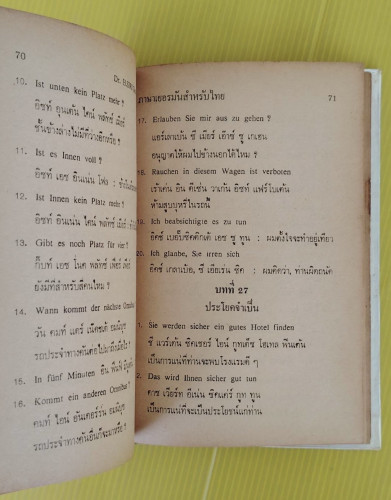 70
10. Ist unten kein Platz mehr ?
อิซท์ อุนเต้น ไคน์ พลัทซ์ เมียร์
ชั้นข้างล่างไม่มีที่ว่างอีกหรือ ?
11. Ist es Innen voll ?
อิซท์ เอซ อินเน่น โฟล :
12. Ist Innen kein Platz mehr ?
อิซท์ อินเน่น ไคน์ พลัทซ์ เมียร์
13. Gibt es noch Platz für vier ?
กิ๊บท์ เอซ โนค พลัทซ์ เฟียร์
ยังมีที่สำหรับสี่คนไหม ?
14. Wann kommt der nächste
วัน คมท์ แดร์ เน็คซเต้
รถประจำทางคันต่อไปมาถึงเมื่อไร
15. In fünf Minuten
16. Kommt ein anderer Omnibus ?
คมท์ ไอน์ อันเดอร์เรน
รถประจำทางคันอื่นก็จะมาหรือ ?
ภาษาเยอรมันสำหรับไทย 71
17. Erlauben Sie mir aus zu gehen ?
แอร์เลาเบ้น ซี เมียร์ เอ๊าซ์ ซู เกเฮน
อนุญาตให้ผมไปข้างนอกได้ไหม ?
18. Rauchen in diesem Wagen ist verboten
เร้าเค่น อิน ดีเซ่ม วาเก้น อิซท์ แฟร์โบเต้น
ห้ามสูบบุหรี่ในรถนี้
19. Ich beabsichtigte es zu run
อิคซ์ เบอั๊บซิคติกเต้ เอซ ซู ทูน : ผมตั้งใจจะทำอยู่เทียว
20. Ich glaube, Sie irren sich
อิคซ์ เกลาเบ้อ, ซี เอียเร่น ซิค : ผมคิดว่า, ท่านผิดถนัด
บทที่ 27
ประโยคจำเป็น
1. Sie werden sicher ein gutes Hotel finden
ซี แวร์เด้น ซิคเชอร์ ไอน์ กูทเต๊ซ โฮเทล ฟินเด้น
เป็นการแน่ที่ท่านจะพบโรงแรมดี ๆ
2. Das wird Ihnen sicher gut tun
ดาซ เวียร์ท อีเน่น ซิคเคร์ กู๊ท ทูน
เป็นการแน่ที่จะเป็นประโยชน์แก่ท่าน